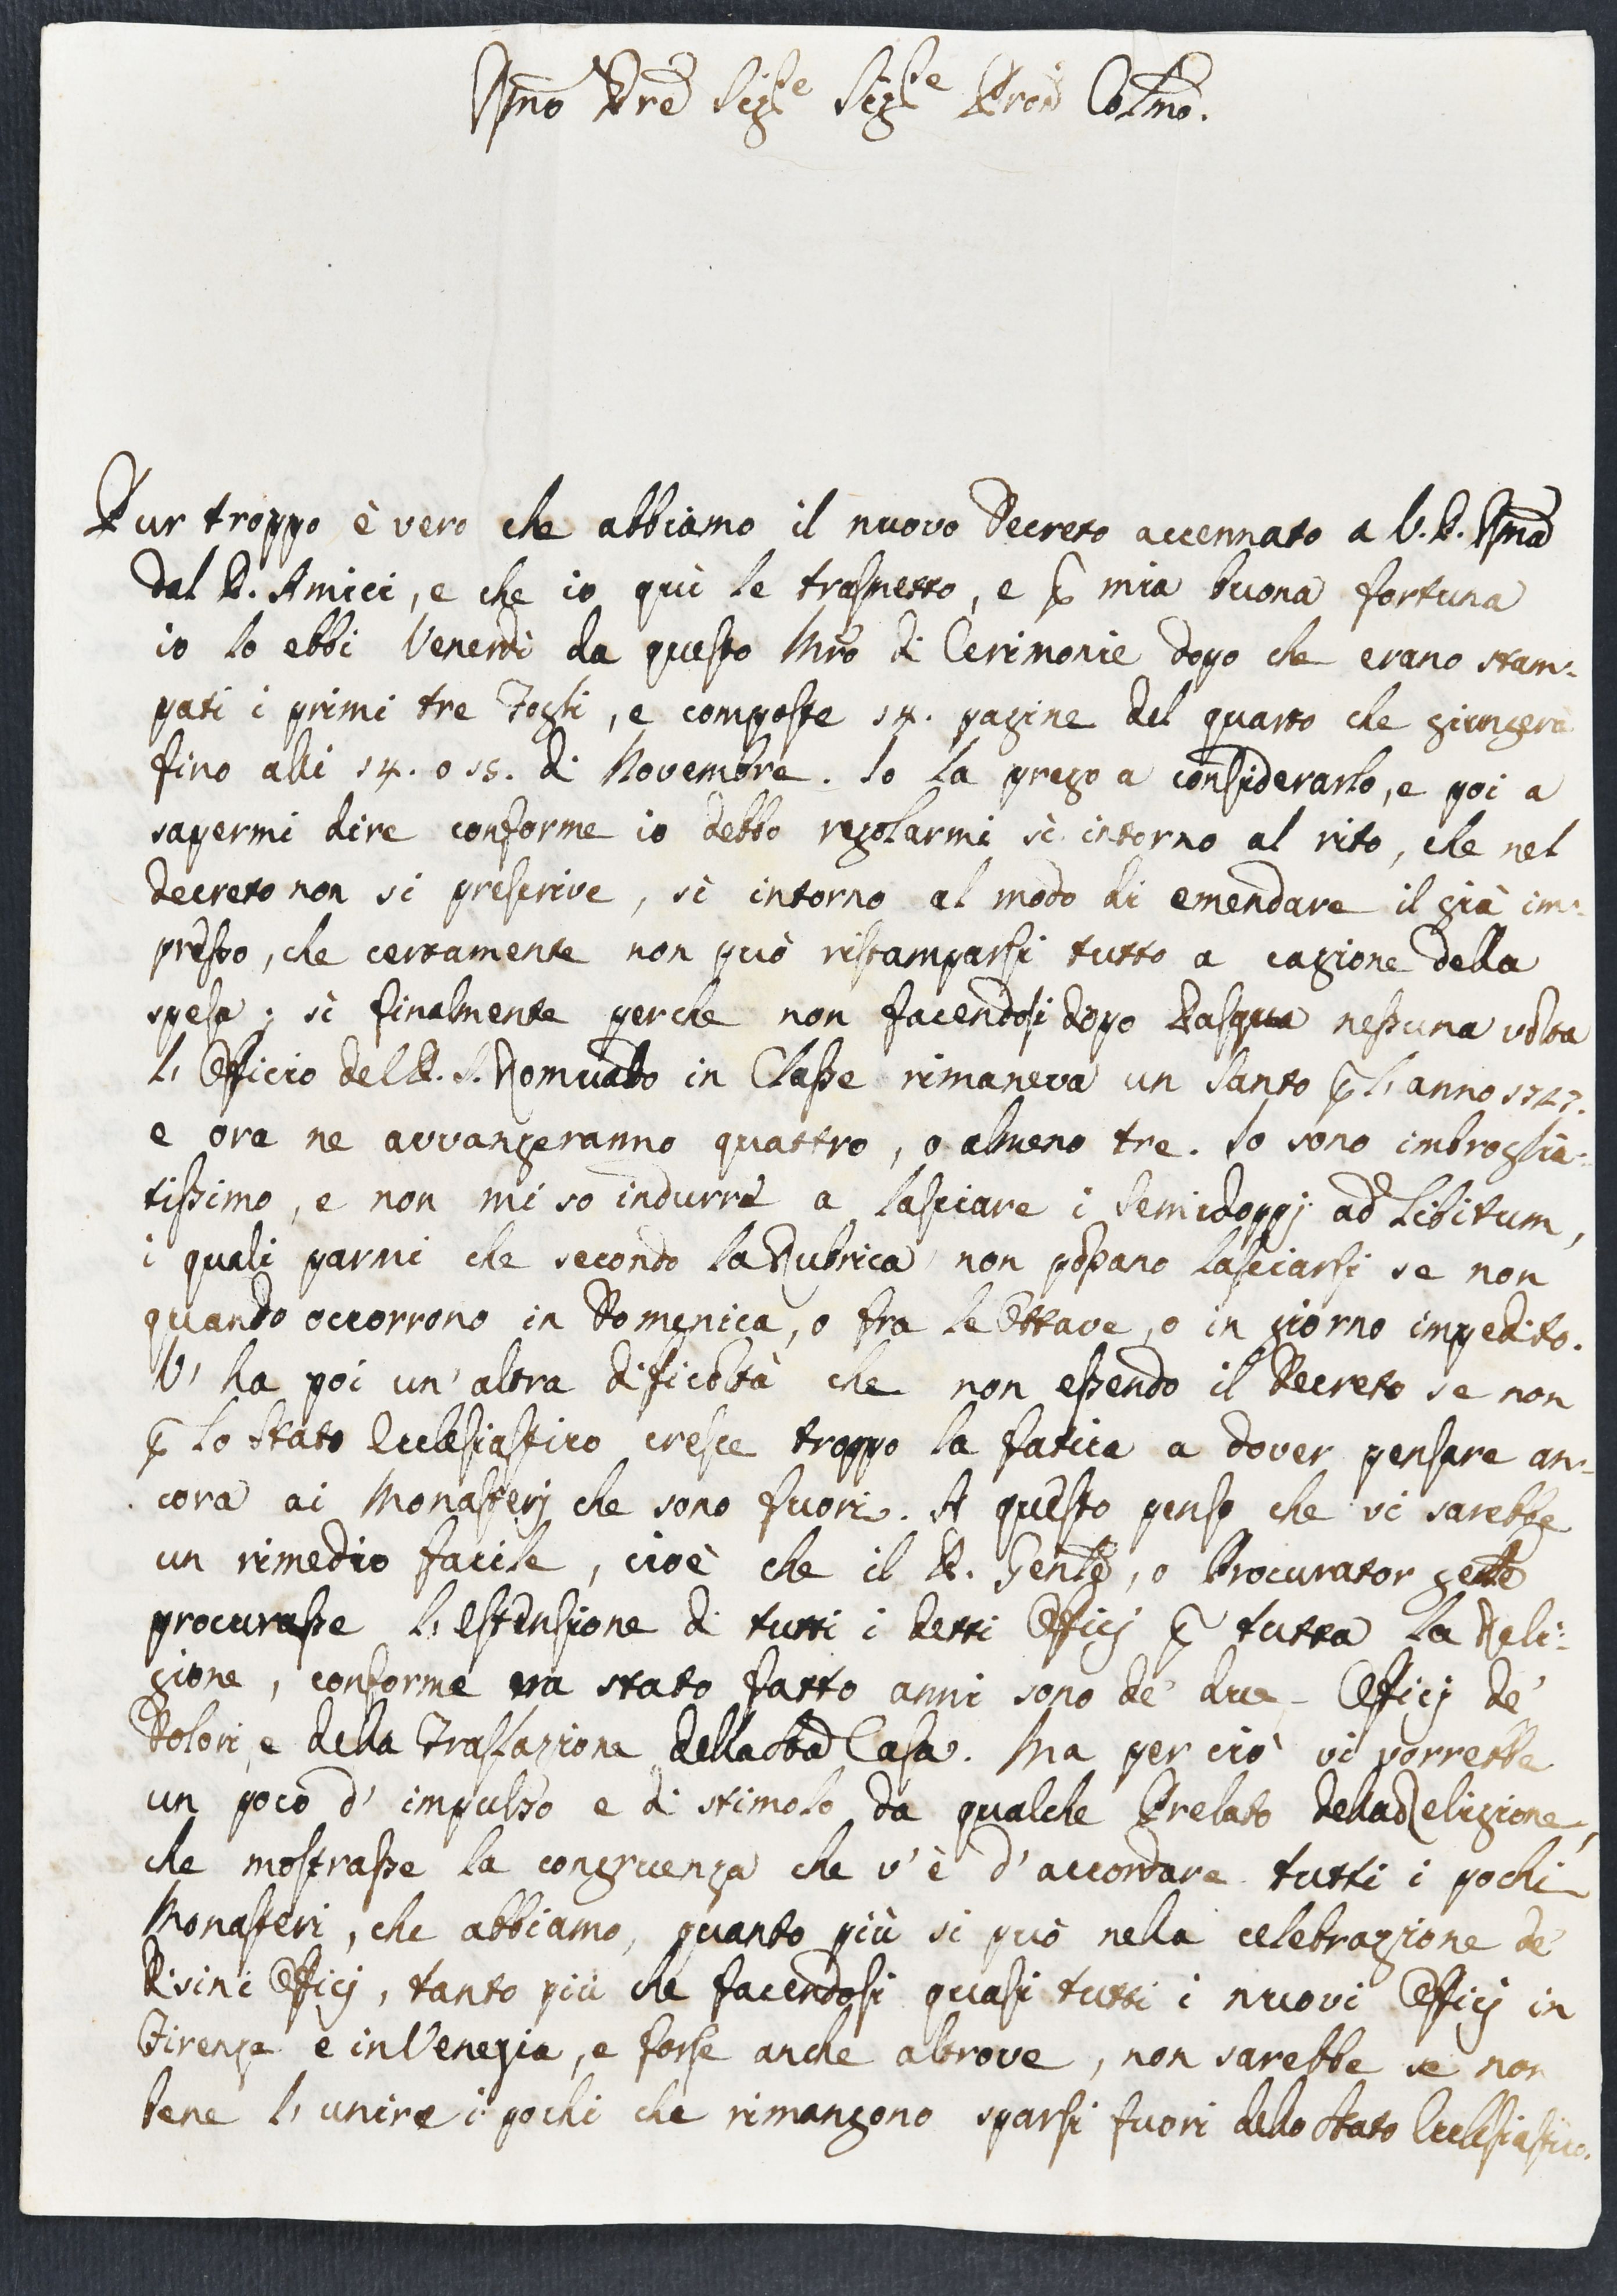 Rmo Pre Sigre Sigre Pron Colmo.
Pur troppo è vero che abbiamo il nuovo Decreto accennato a V. P. Rma
dal P. Amici, e che io quì le trasmetto, e p mia buona fortuna
io lo ebbi Venerdì da questo Mro di Cerimonie dopo che erano stam-
pati i primi tre Fogli, e composte 14. pagine del quarto che giungerà
fino alli 14. o 15. di Novembre. Io la prego a considerarlo, e poi a
sapermi dire conforme io debbo regolarmi sì intorno al rito, che nel
decreto non si prescrive, sì intorno al modo di emendare il già im-
presso, che certamente non può ristamparsi tutto a cagione della
spesa; sì finalmente perche non facendosi dopo Pasqua nessuna volta
l'Officio del P. S. Romualdo in Classe rimaneva un Santo p l'anno 1747.
e ora ne avvangeranno quattro, o almeno tre. Io sono imbroglia-
tissimo, e non mi so indurre a lasciare i Semidoppj ad libitum,
i quali parmi che secondo la Rubrica non possano lasciarsi se non
quando occorrono in Domenica, o fra le Ottave, o in giorno impedito.
V'ha poi un'altra dificoltà che non essendo il Decreto se non
p lo Stato Ecclesiastico cresce troppo la fatica a dover pensare an-
cora ai Monasterj che sono fuori. A questo penso che vi sarebbe
un rimedio facile, cioè che il P. Genle, o Procurator genle
procurasse l'estensione di tutti i detti Officj p tutta la Reli-
gione, conforme era stato fatto anni sono de' due Officj de'
Dolori, e della Traslazione della Sta Casa. Ma per ciò vi vorrebbe
un poco d'impulso e di stimolo da qualche Prelato della Religione,
che mostrasse la congruenza che v'è d'accordare tutti i pochi
Monasteri, che abbiamo, quanto più si può nella celebrazione de'
Divini Officj, tanto più che facendosi quasi tutti i nuovi Officj in
Firenze e in Venezia, e forse anche altrove, non sarebbe se non
bene l'unire i pochi che rimangono sparsi fuori dello Stato Ecclesiastico.